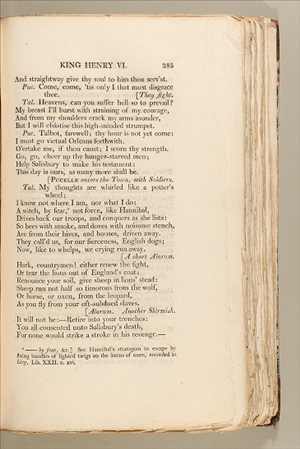 KING HENRY VI. 285
And straightway give thy soul to him thou serv'st.
Puc. Come, come, 'tis only I that must disgrace
thee. [They fight.
Tal. Heavens, can you suffer hell so to prevail?
My breast I'll burst with straining of my courage,
And from my shoulders crack my arms asunder,
But I will chástise this high-minded strumpet.
Puc. Talbot, farewell; thy hour is not yet come:
I must go victual Orleans forthwith.
O'ertake me, if thou canst; I scorn thy strength.
Go, go, cheer up thy hunger-starved men;
Help Salisbury to make his testament:
This day is ours, as many more shall be.
[PUCELLE enters the Town, with Soldiers.
Tal. My thoughts are whirled like a potter's
wheel;
I know not where I am, nor what I do:
A witch, by fear,* not force, like Hannibal,
Drives back our troops, and conquers as she lists:
So bees with smoke, and doves with noisome stench,
Are from their hives, and houses, driven away.
They call'd us, for our fierceness, English dogs;
Now, like to whelps, we crying run away.
[A short Alarum.
Hark, countrymen! either renew the fight,
Or tear the lions out of England's coat;
Renounce your soil, give sheep in lions' stead:
Sheep run not half so timorous from the wolf,
Or horse, or oxen, from the leopard,
As you fly from your oft-subdued slaves.
[Alarum. Another Skirmish.
It will not be:—Retire into your trenches:
You all consented unto Salisbury's death,
For none would strike a stroke in his revenge.—
* —— by fear, &c.] See Hannibal's stratagem to escape by
fixing bundles of lighted twigs on the horns of oxen, recorded in
Livy, Lib. XXII. c. xvi.